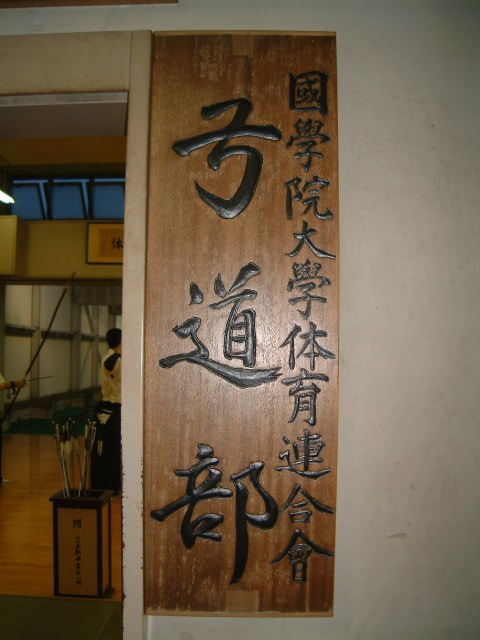 國學院大學体育連合會
弓道部
体
贈